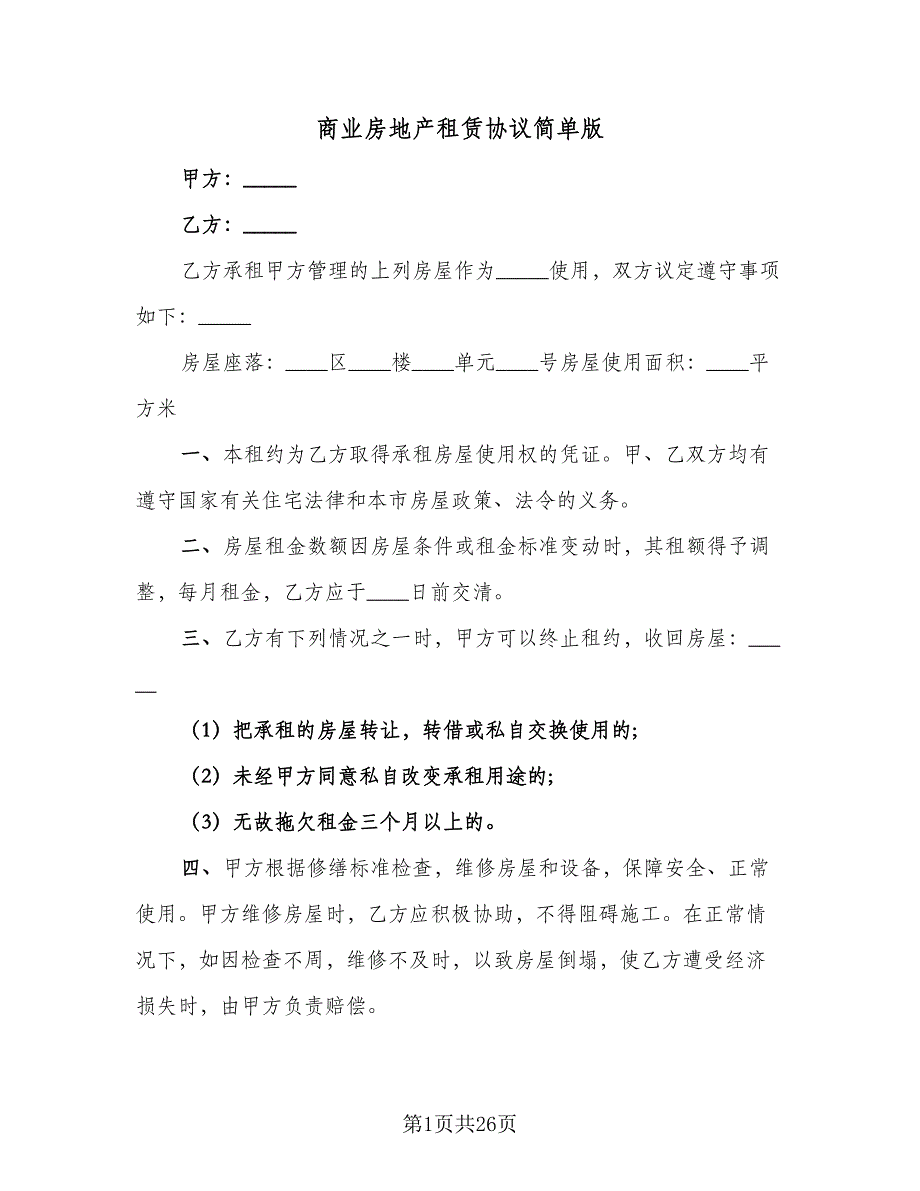 商业房地产租赁协议简单版
甲方：_____
乙方：_____
乙方承租甲方管理的上列房屋作为_____使用，双方议定遵守事项
如下：_____
房屋座落：____区____楼____单元____号房屋使用面积：____平
方米
一、本租约为乙方取得承租房屋使用权的凭证。甲、乙双方均有
遵守国家有关住宅法律和本市房屋政策、法令的义务。
二、房屋租金数额因房屋条件或租金标准变动时，其租额得予调
整，每月租金，乙方应于____日前交清。
三、乙方有下列情况之一时，甲方可以终止租约，收回房屋：___
__
（1）把承租的房屋转让，转借或私自交换使用的;
（2）未经甲方同意私自改变承租用途的;
（3）无故拖欠租金三个月以上的。
四、甲方根据修缮标准检查，维修房屋和设备，保障安全、正常
使用。甲方维修房屋时，乙方应积极协助，不得阻碍施工。在正常情
况下，如因检查不周，维修不及时，以致房屋倒塌，使乙方遭受经济
损失时，由甲方负责赔偿。
第1页共26页